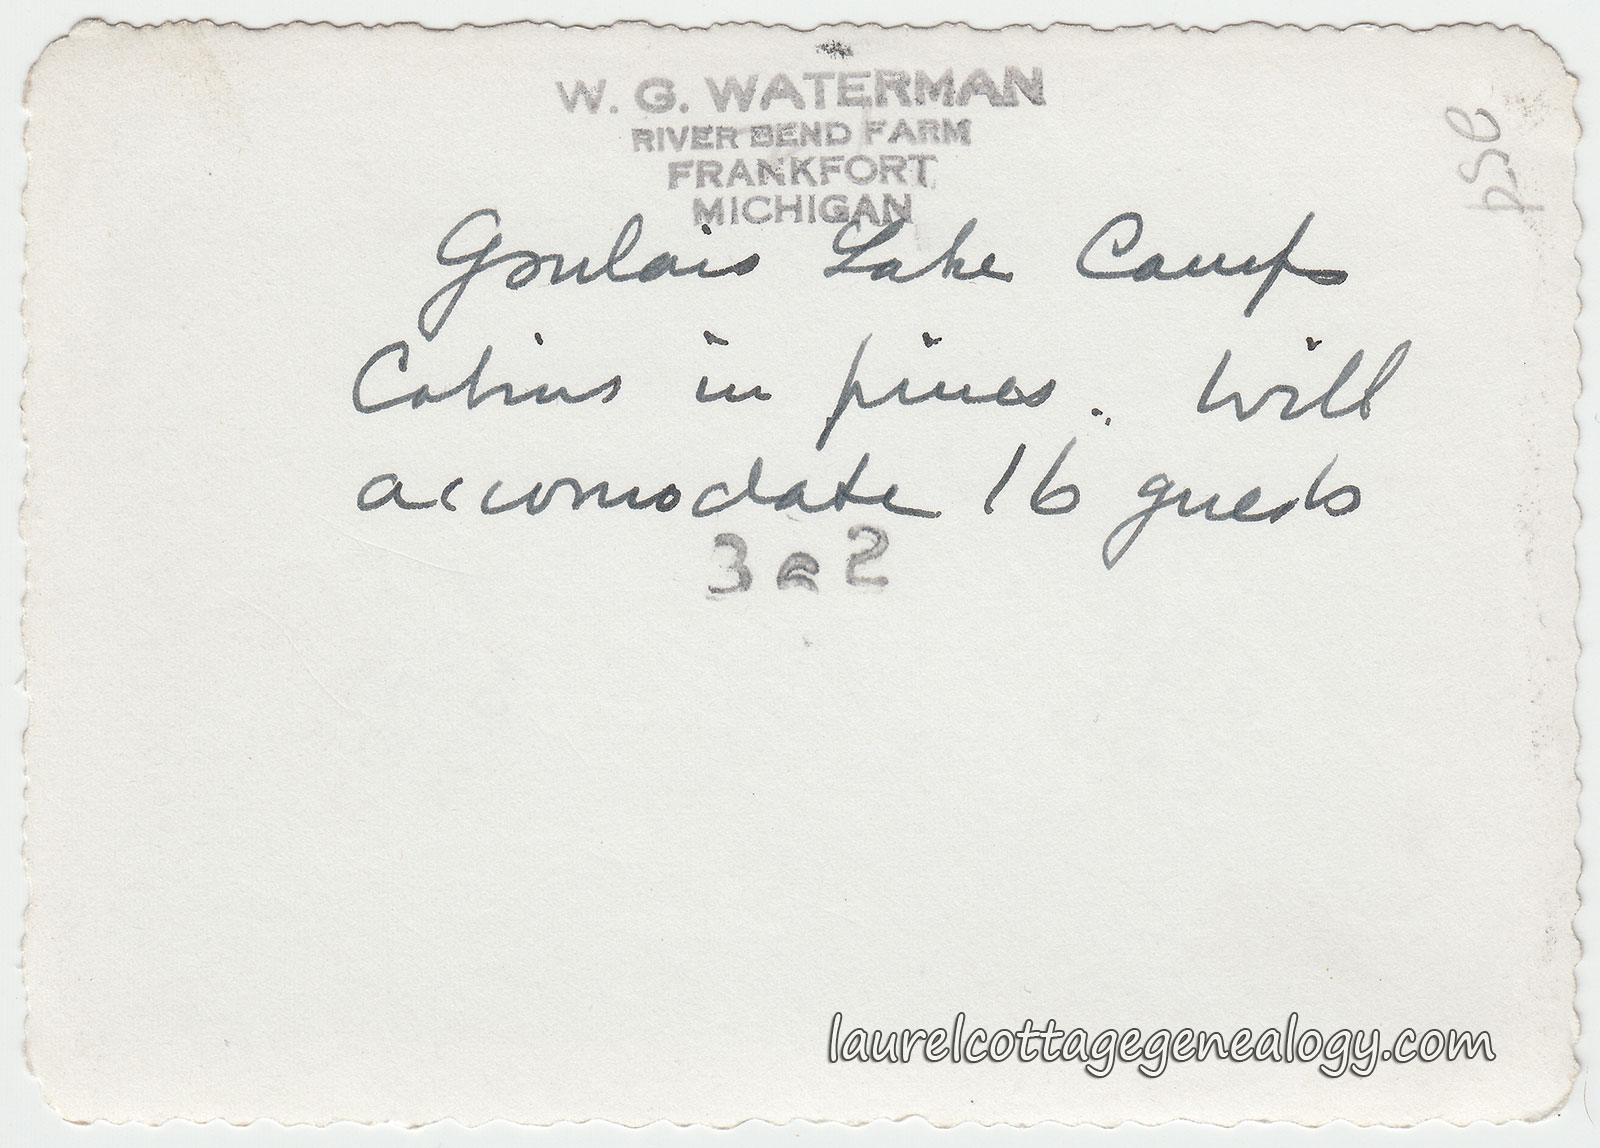 W. G. WATERMAN
RIVER BEND FARM
FRANKFORT
MICHIGAN
Goulais Lake Camp
Cabins in pines. Will
accomodate 16 guests
3 2
laurelcottagegenealogy.com